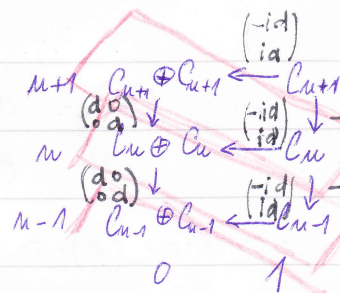 (-id
id)
n+1 Cn+1 ⊕ Cn+1 ← Cn+1
(d 0
0 d) ↓ (-id
id) ↓ -
n Cn ⊕ Cn ← Cn
(d 0
0 d) ↓ (-id
id) ↓ -
n-1 Cn-1 ⊕ Cn-1 ← Cn-1
0 1